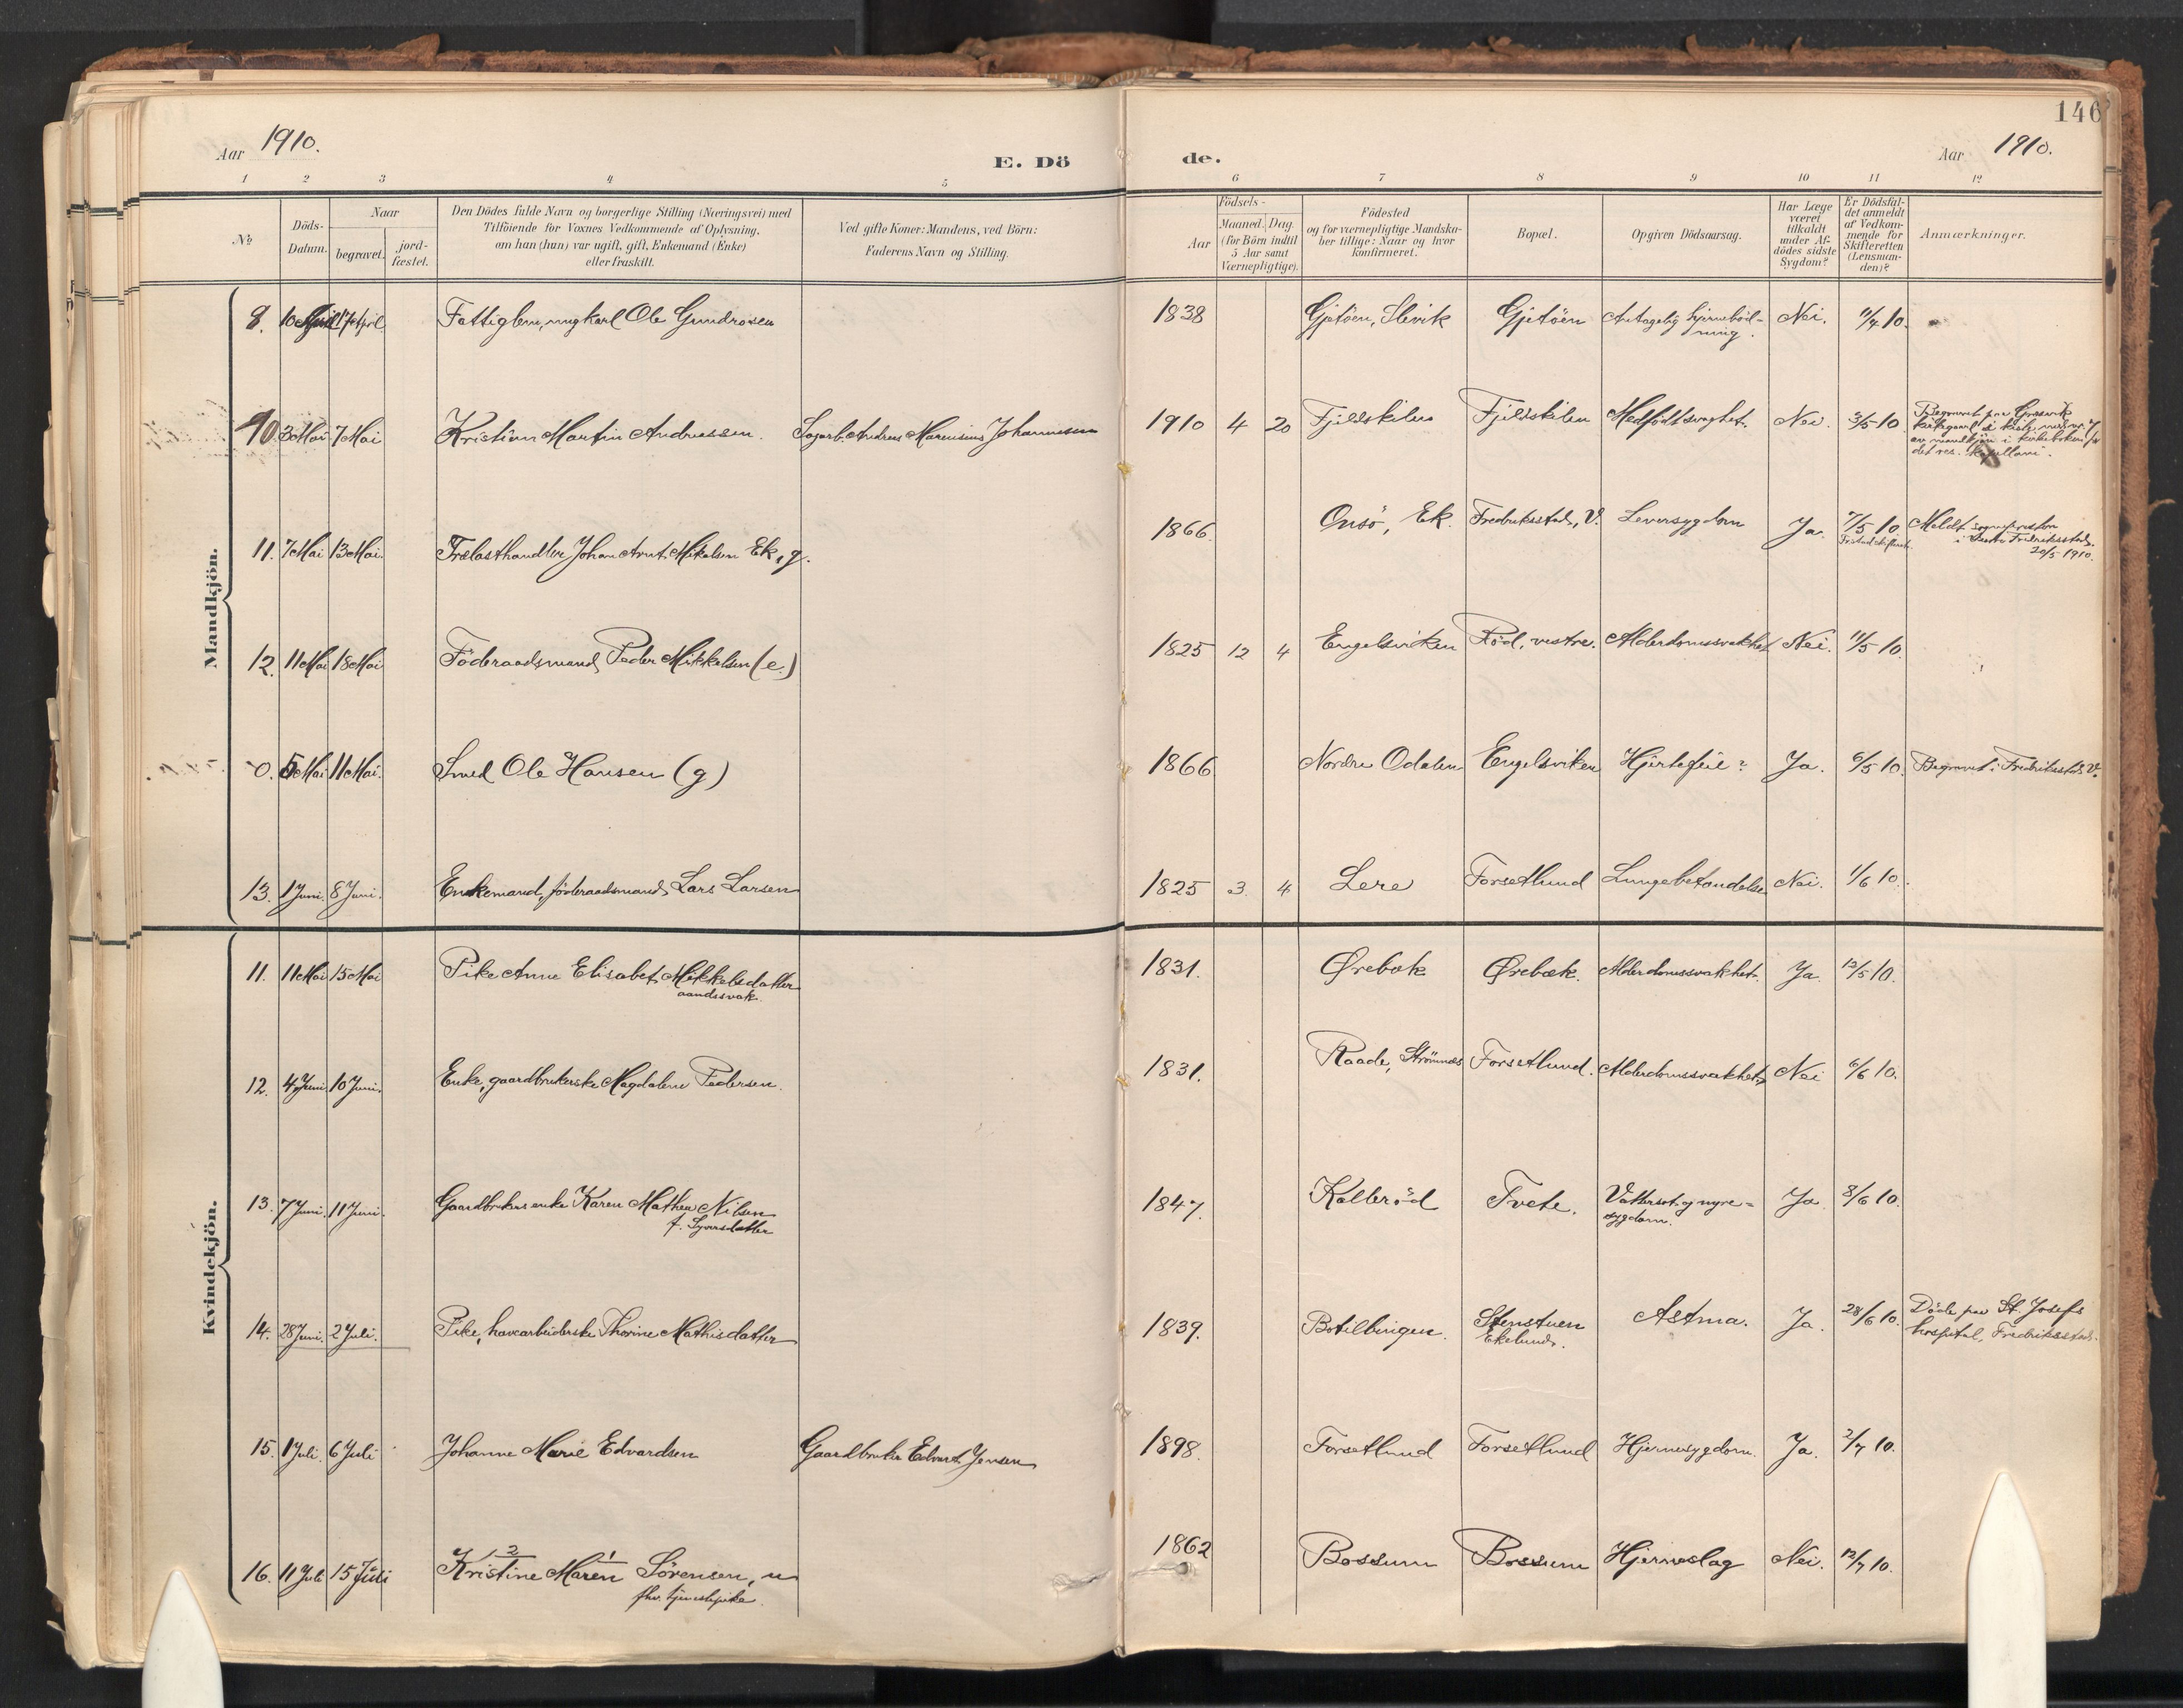 146
Aar 1910.
E. Dö de.
Aar 1910.
1 2 3 4 5 6 7 8 9 10 11 12
No
Döds-
Datum.
Naar
begravet.
jord-
fæstet.
Den Dödes fulde Navn og borgerlige Stilling (Næringsvei) med
Tilföiende for Voxnes Vedkommende af Oplysning,
om han (hun) var ugift, gift, Enkemand (Enke)
eller fraskilt.
Ved gifte Koner: Mandens, ved Börn:
Faderens Navn og Stilling.
Födsels-
Aar
Maaned.
Dag.
(for Börn indtil
5 Aar samt
Værnepligtige).
Födested
og for værnepligtige Mandska-
ber tillige: Naar og hvor
konfirmeret.
Bopæl.
Opgiven Dödsaarsag.
Har Læge
været
tilkaldt
under Af-
dödes sidste
Sygdom?
Er Dödsfal-
det anmeldt
af Vedkom-
mende for
Skifteretten
(Lensman-
den)?
Anmærkninger.
Mandkjön.
8. 10 April 17 April Fattiglem, ungkarl Ole Gundrosen 1838 Gjetöen, Slevik Gjetöen Antagelig hjerneblöd- Nei. 11/4 10.
ning.
10 3 Mai 7 Mai Kristian Martin Andreassen. Sagarb. Andreas Marensius Johannesen 1910 4 20 Fjeldskilen Fjeldskilen Medfödt svaghet. Nei. 3/5 10 Begravet paa Gressvik
kirkegaard
av mandkjön i kirkeboken for
det res. kapellani.
11. 7 Mai 13 Mai. Trælasthandler Johan Arnt Mikalsen Ek, g. 1866. Onsö, Ek. Fredriksstad, V. Leversygdom Ja. 7/5 10 Meldt sognepresten
i Fredriksstad
20/5 1910.
12. 11 Mai 18 Mai Föderaadsmand Peder Mikkelsen (e.) 1825 12 4 Engelsviken Röd, vestre. Alderdomssvakhet Nei. 11/5 10.
0. 5 Mai 11 Mai. Smed Ole Hansen (g) 1866 Nordre Odalen Engelsviken Hjertefeil? Ja. 6/5 10. Begravet i Fredriksstad V.
13. 1 Juni. 8 Juni. Enkemand, föderaadsmand Lars Larsen 1825 3. 4 Lere Forsetlund Lungebetændelse Nei. 1/6 10.
Kvindekjön.
11. 11 Mai 15 Mai Pike Anne Elisabet Mikkelsdatter 1831. Ørebæk Ørebæk. Alderdomssvakhet. Ja. 12/5 10.
aandssvak.
12. 4 Juni 10 Juni. Enke, gaardbrukerske Magdalene Pedersen. 1831. Raade, Strömnæs Forsetlund. Alderdomssvakhet Nei 6/6 10.
13. 7 Juni. 11 Juni. Gaardbrukerenke Karen Mathea Nilsen 1847. Kalleröd Tvete. Vattersot og nyre- Ja. 8/6 10.
f. Syversdatter
sygdom.
14. 28 Juni. 2 Juli. Pike, havearbeiderske Thorine Mathisdatter 1839. Botilbingen. Stenstuen Astma. Ja. 28/6 10. Döde paa St. Josefs
Ekelund. hospital, Fredriksstad.
15. 1 Juli. 6 Juli Johanne Marie Edvardsen Gaardbruker Edvart Jensen 1898. Forsetlund Forsetlund Hjernesygdom. Ja. 2/7 10.
2 1
16. 11 Juli 15 Juli Kristine Maren Sörensen, u 1862 Bossum Bossum Hjerneslag Nei. 12/7 10.
fhv. tjenestepike.